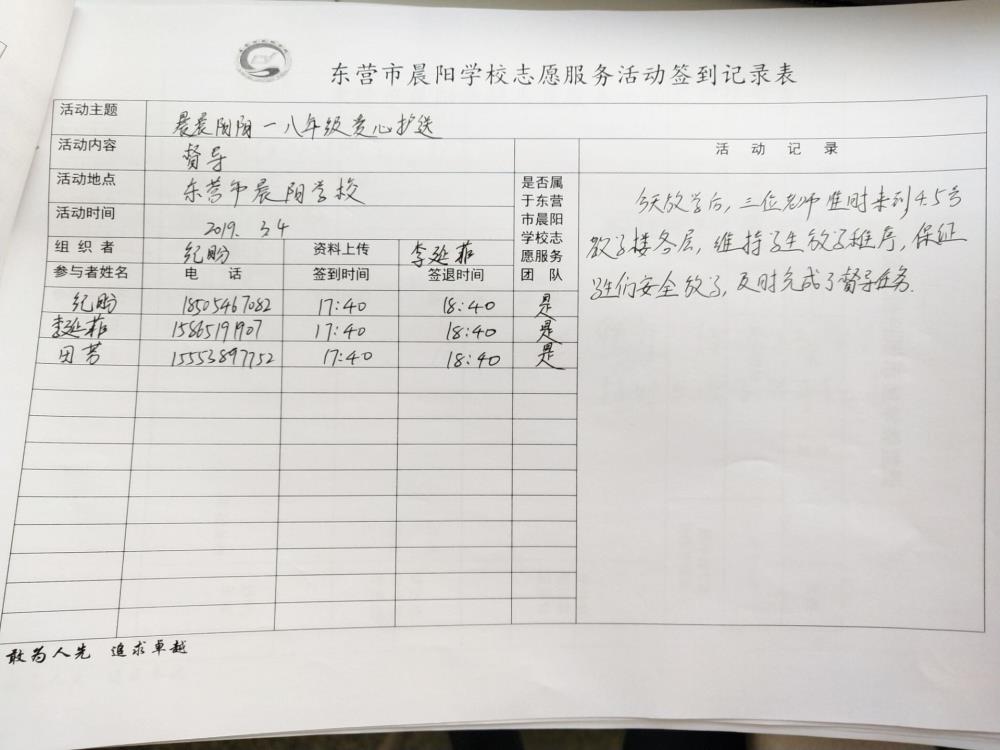 东营市晨阳学校志愿服务活动签到记录表
活动主题 晨晨阳阳一八年级爱心护送
活动内容 督导
活动地点 东营市晨阳学校
活动时间 2019. 3.4
组织者 纪盼 资料上传 李延菲
参与者姓名 电话 签到时间 签退时间
是否属
于东营
市晨阳
学校志
愿服务
团队
纪盼 18505467082 17:40 18:40 是
李延菲 15865191907 17:40 18:40 是
田芳 15553897752 17:40 18:40 是
活动记录
今天放学后,三位老师准时来到4.5号
教学楼各层,维持学生放学秩序,保证
学生们安全放学,及时完成了督导任务.
敢为人先 追求卓越